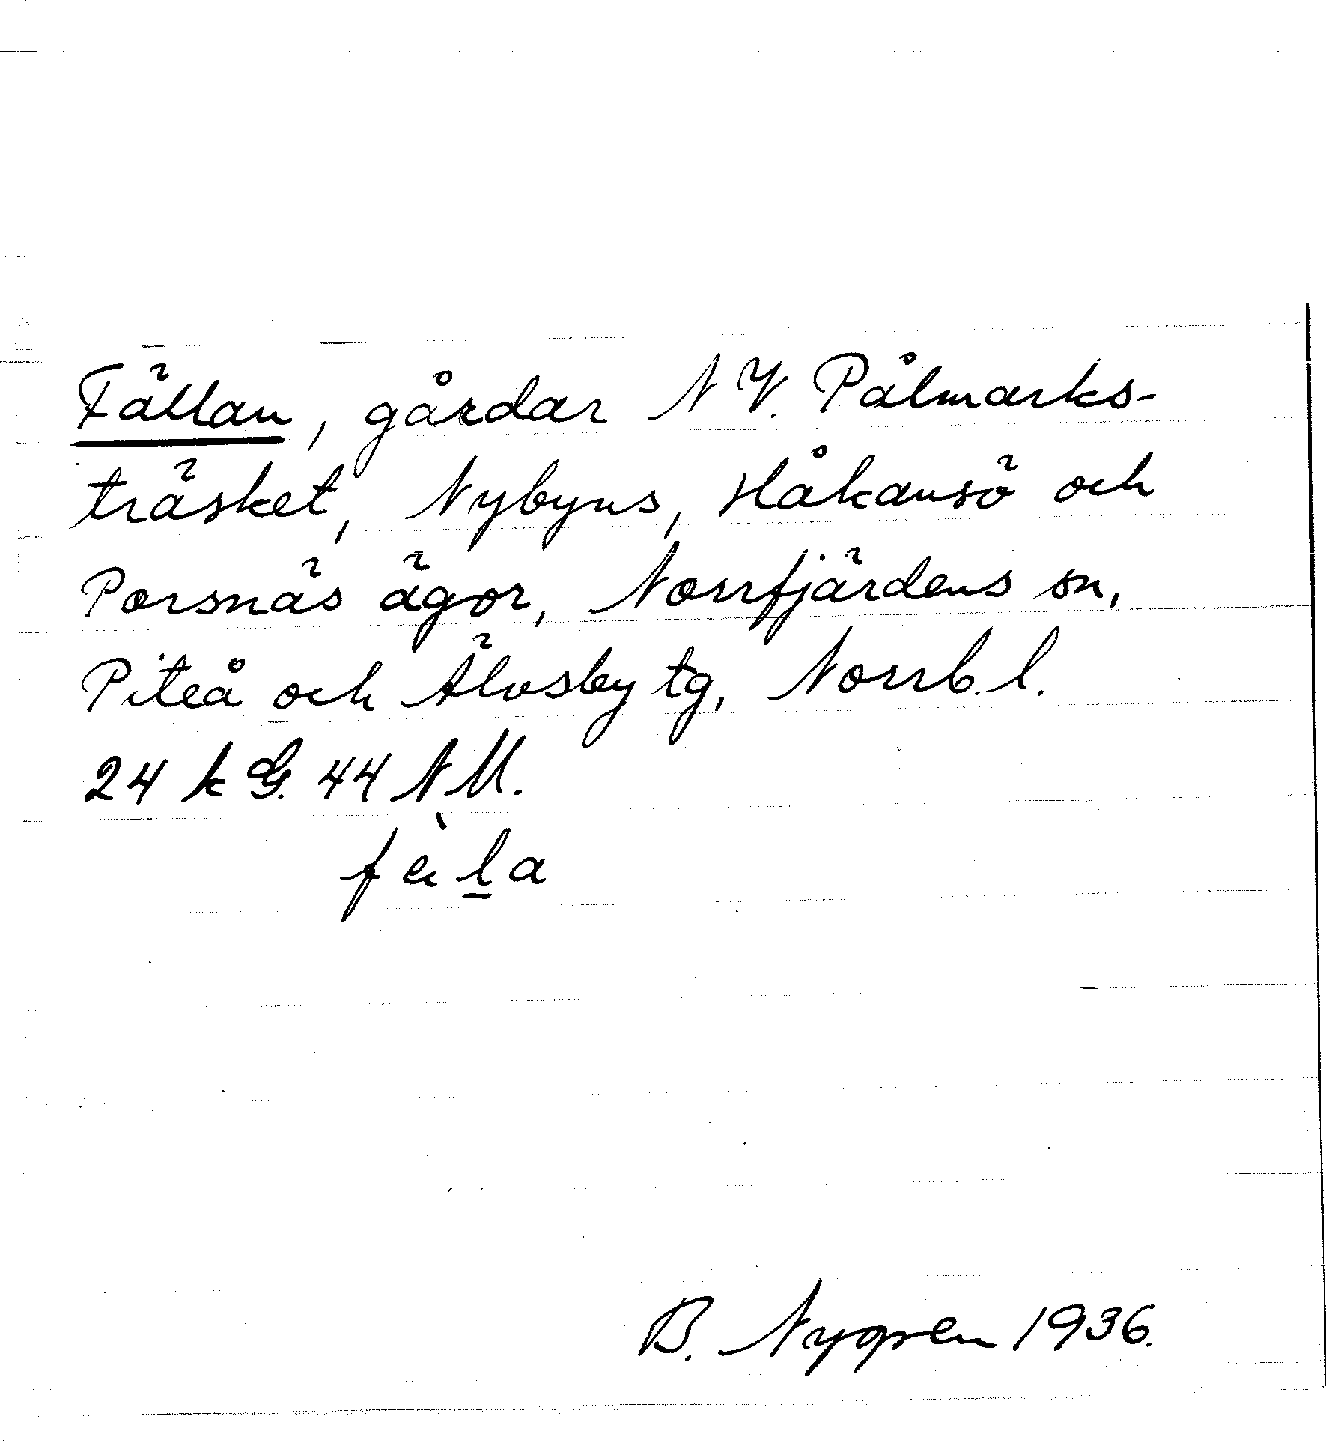 Fällan, gårdar N V. Pålmarks-
träsket, Nybyns, Håkansö och
Porsnäs ägor, Norrfjärdens sn,
Piteå och Älvsby tg, Norrb. l.
24 k G. 44 N M.
fàl̲a
B. Nygren 1936.